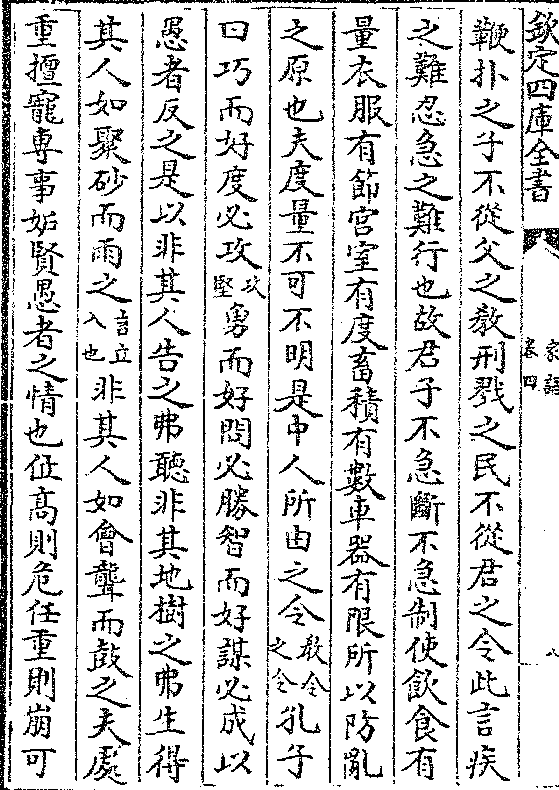 欽定四庫全書
家語
卷四
八
鞭扑之子不從父之教刑戮之民不從君之令此言疾
之難忍急之難行也故君子不急斷不急制使飲食有
量衣服有節宮室有度畜積有數車器有限所以防亂
之原也夫度量不可不明是中人所由之令教令之令孔子
曰巧而好度必攻攻堅勇而好問必勝智而好謀必成以
愚者反之是以非其人告之弗聽非其地樹之弗生得
其人如聚砂而雨之言立入也非其人如會聾而鼓之夫處
重擅寵專事妬賢愚者之情也位高則危任重則崩可